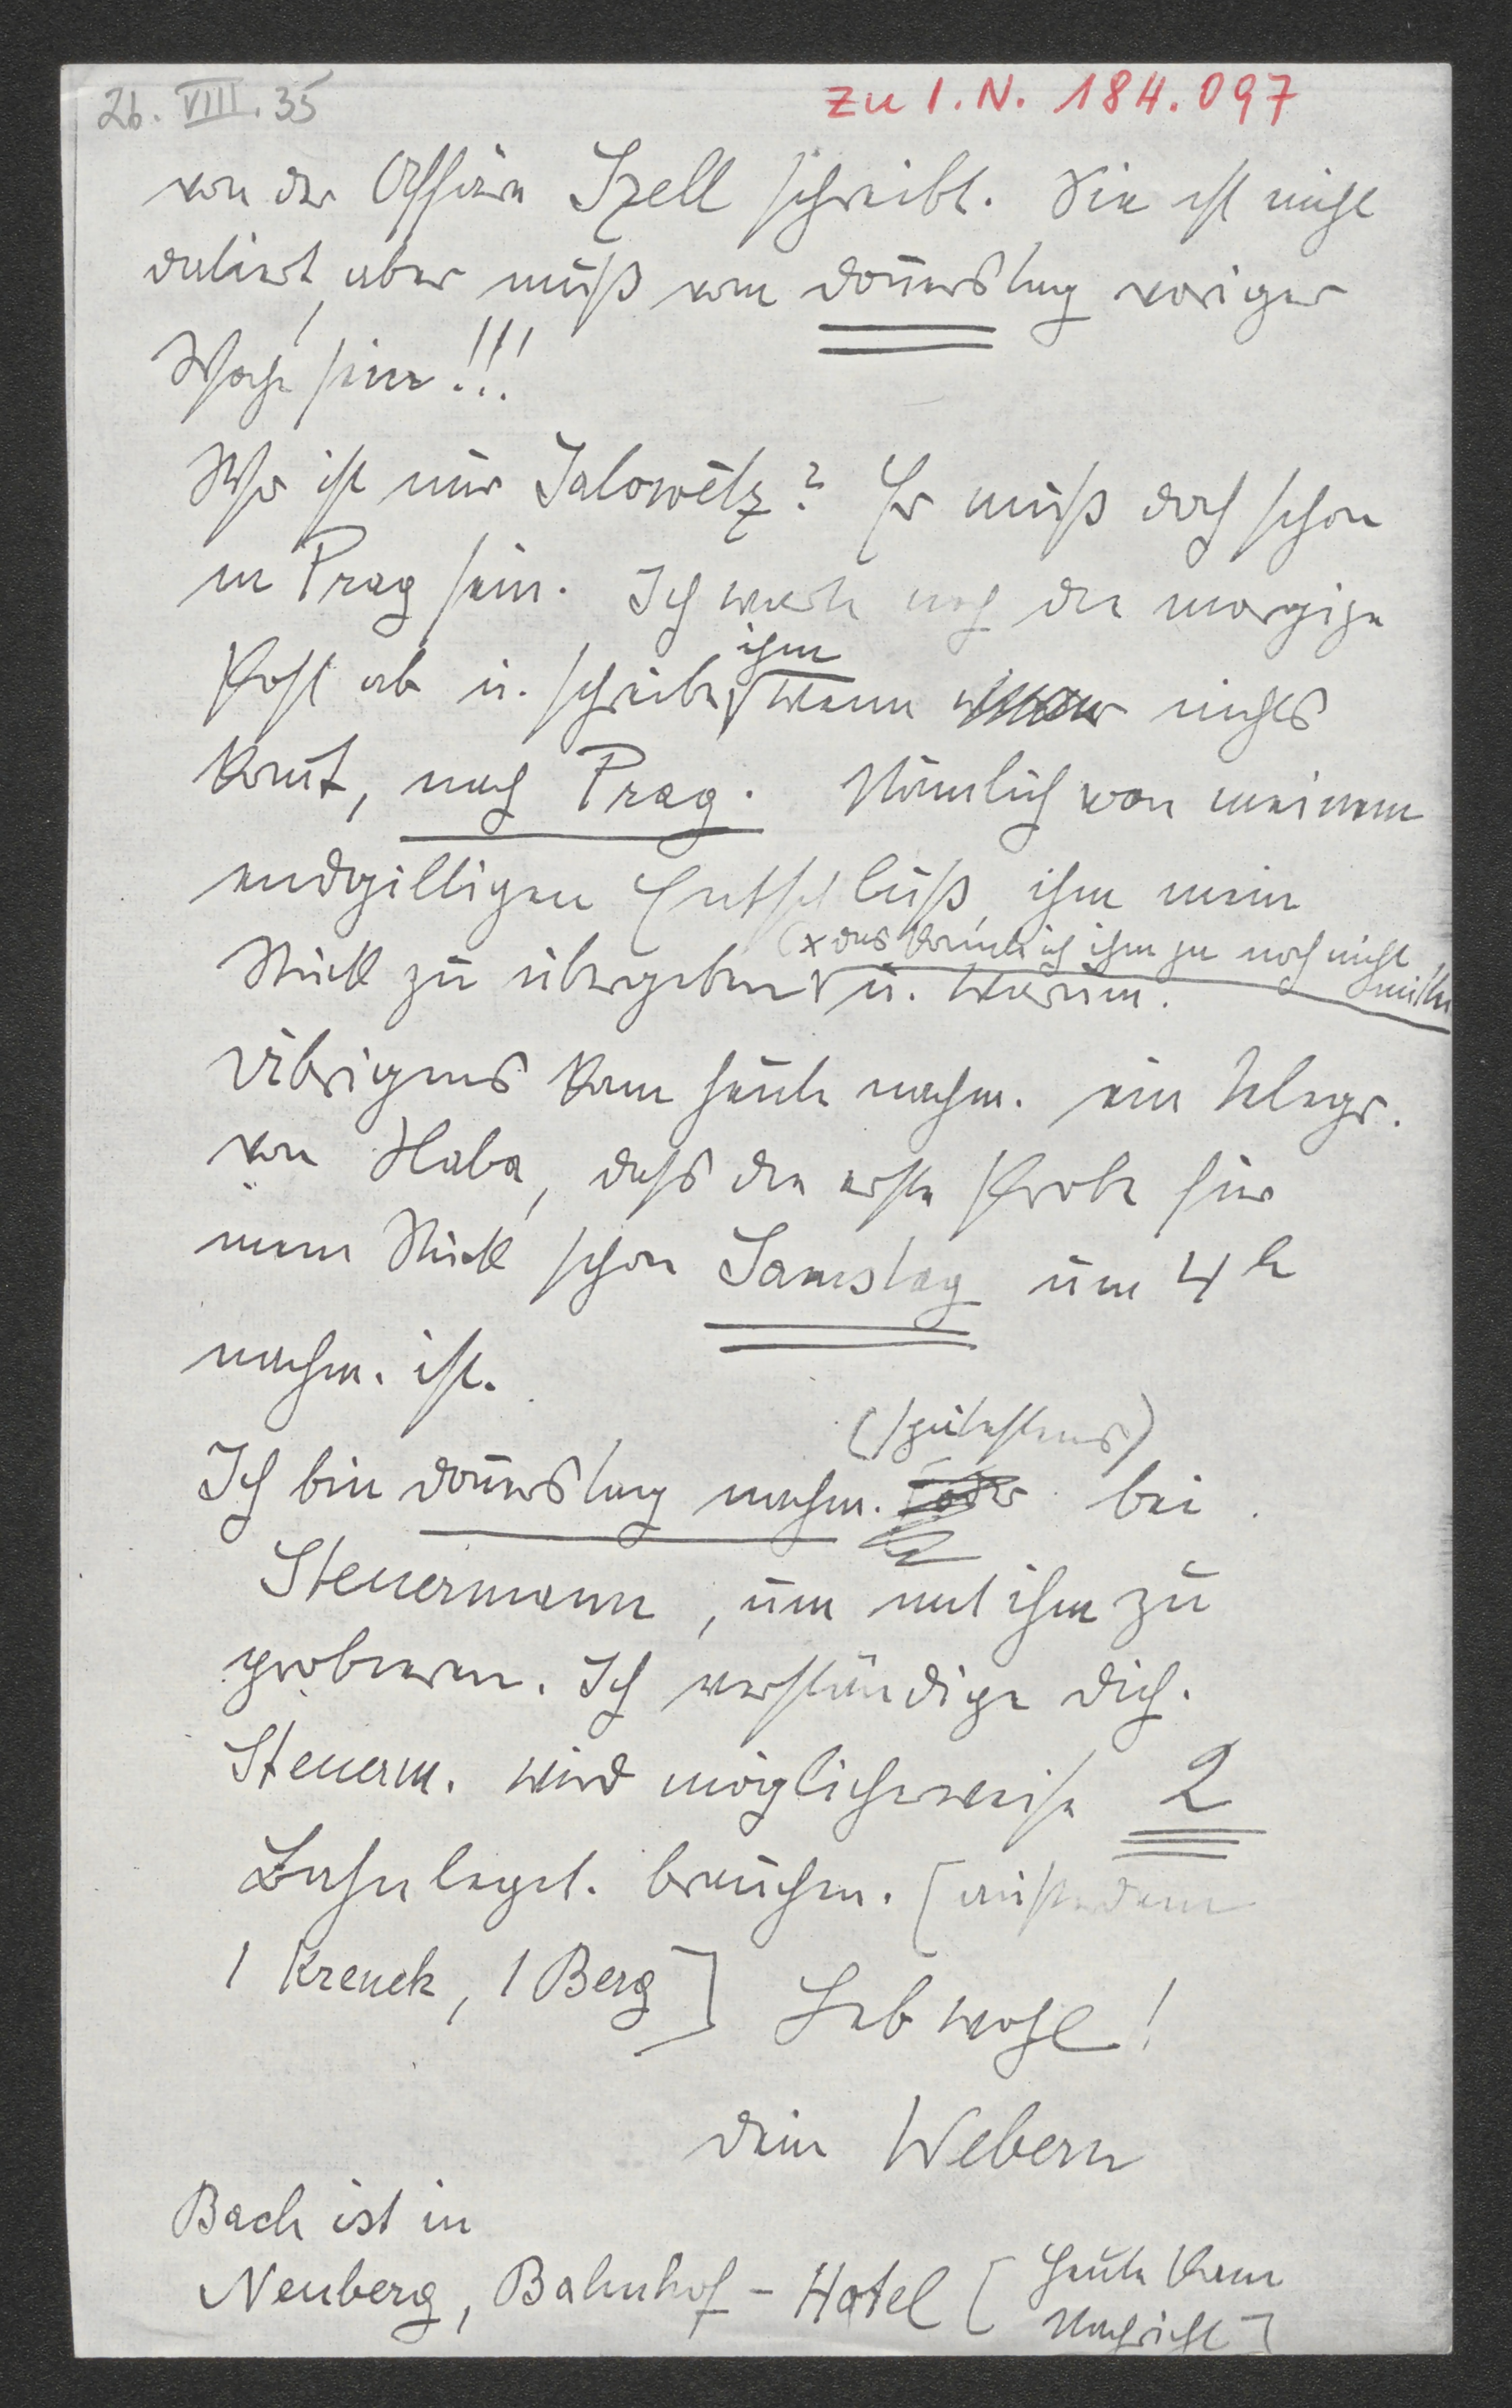 26. VIII. 35
zu I.N. 184.097
von der Affäre Szell schreibt. Sie ist nicht
datiert, aber muß vom Donnerstag voriger
Woche sein!!!
Wo ist nur Jalowetz? Er muß doch schon
in Prag sein. Ich warte noch die morgige
Post ab u. schreibe ihm wenn nichts
kom̅t, nach Prag. Nämlich von meinem
endgiltigen Entschluß, ihm mein
Stück zu übergeben u. warum.
(x das konnte ich ihm ja noch nicht
Übrigens kam heute nachm. ein Telegr.
von Haba, dass die erste Probe für
mein Stück schon Samstag um 4h
nachm. ist.
(spätestens)
Ich bin Don̅erstag nachm. bei
Steuermann, um mit ihm zu
probieren. Ich verständige Dich.
Steuerm. wird möglicherweise 2
Bahnlegit. brauchen. [außerdem
1 Krenek, 1 Berg] Leb wohl!
Dein Webern
Bach ist in
Neuberg, Bahnhof-Hotel [heute kam
Nachricht]